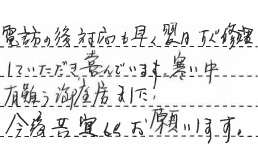 電話の後対応も早く翌日すぐ修理
していただき喜んでいます。寒い中
有難う御座居ました
今後共宜しくお願いします。